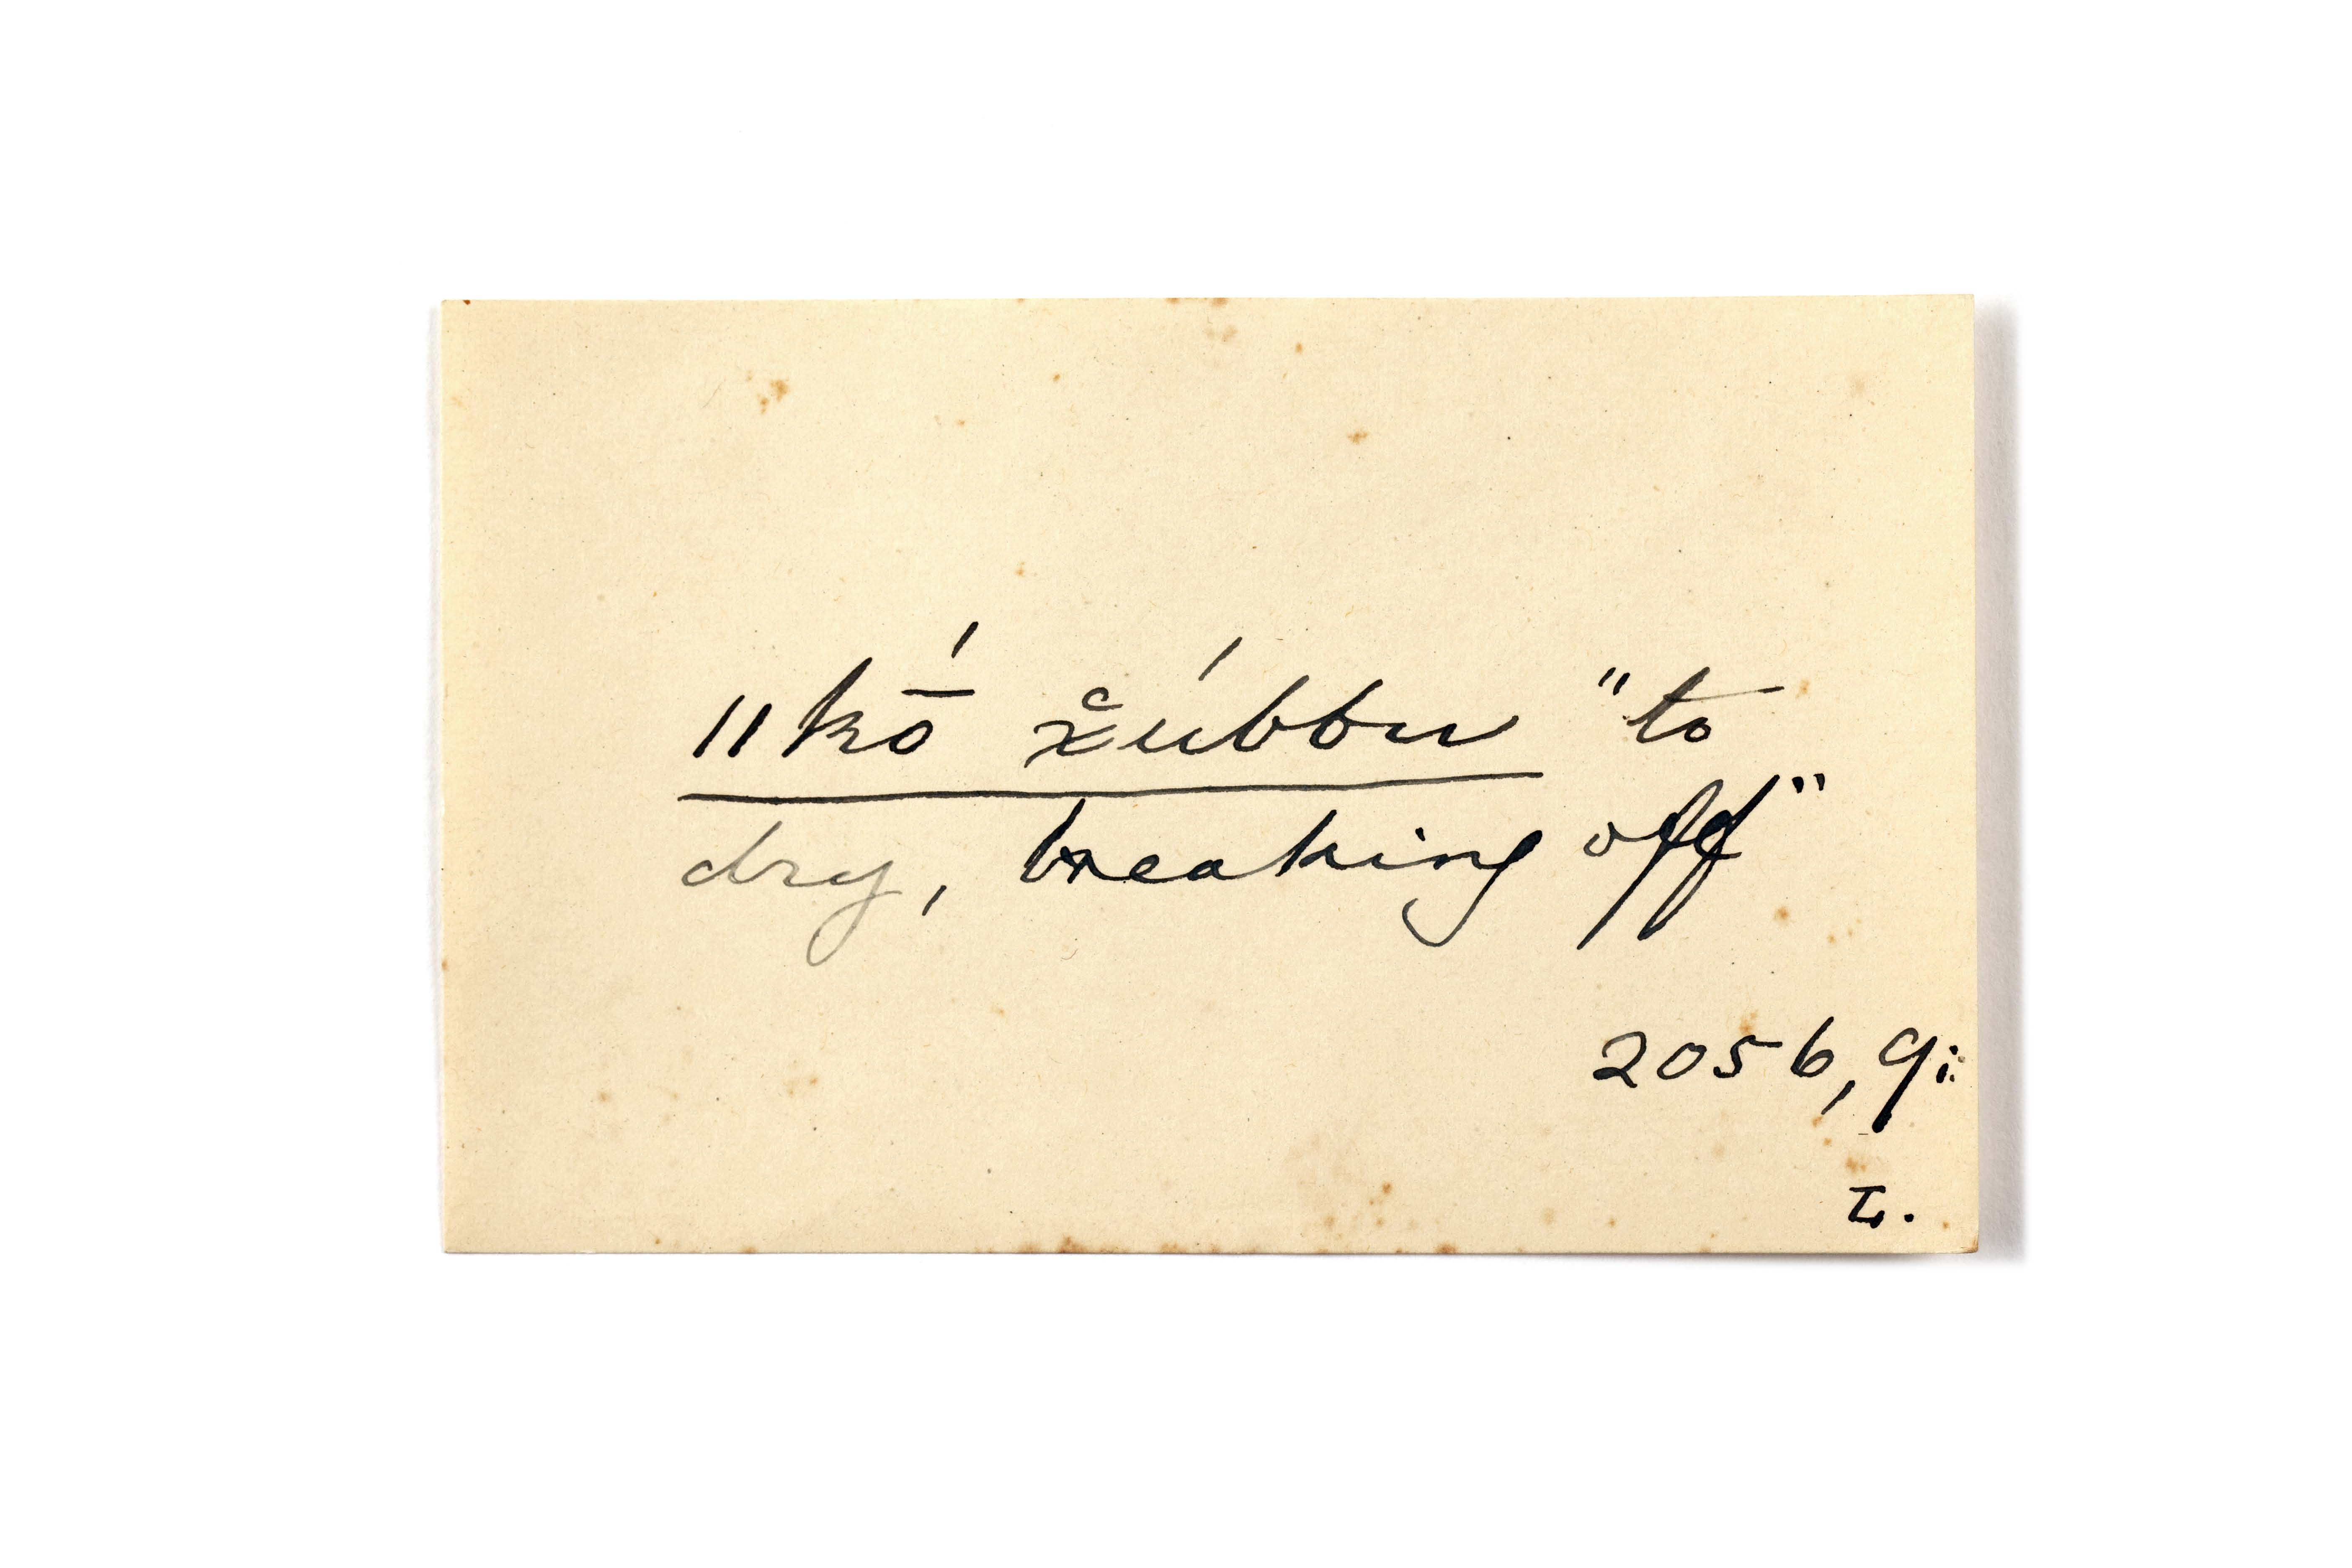 ǁkṓ z̆úbbu "to
dry, breaking off"
2056, 9i:
L.